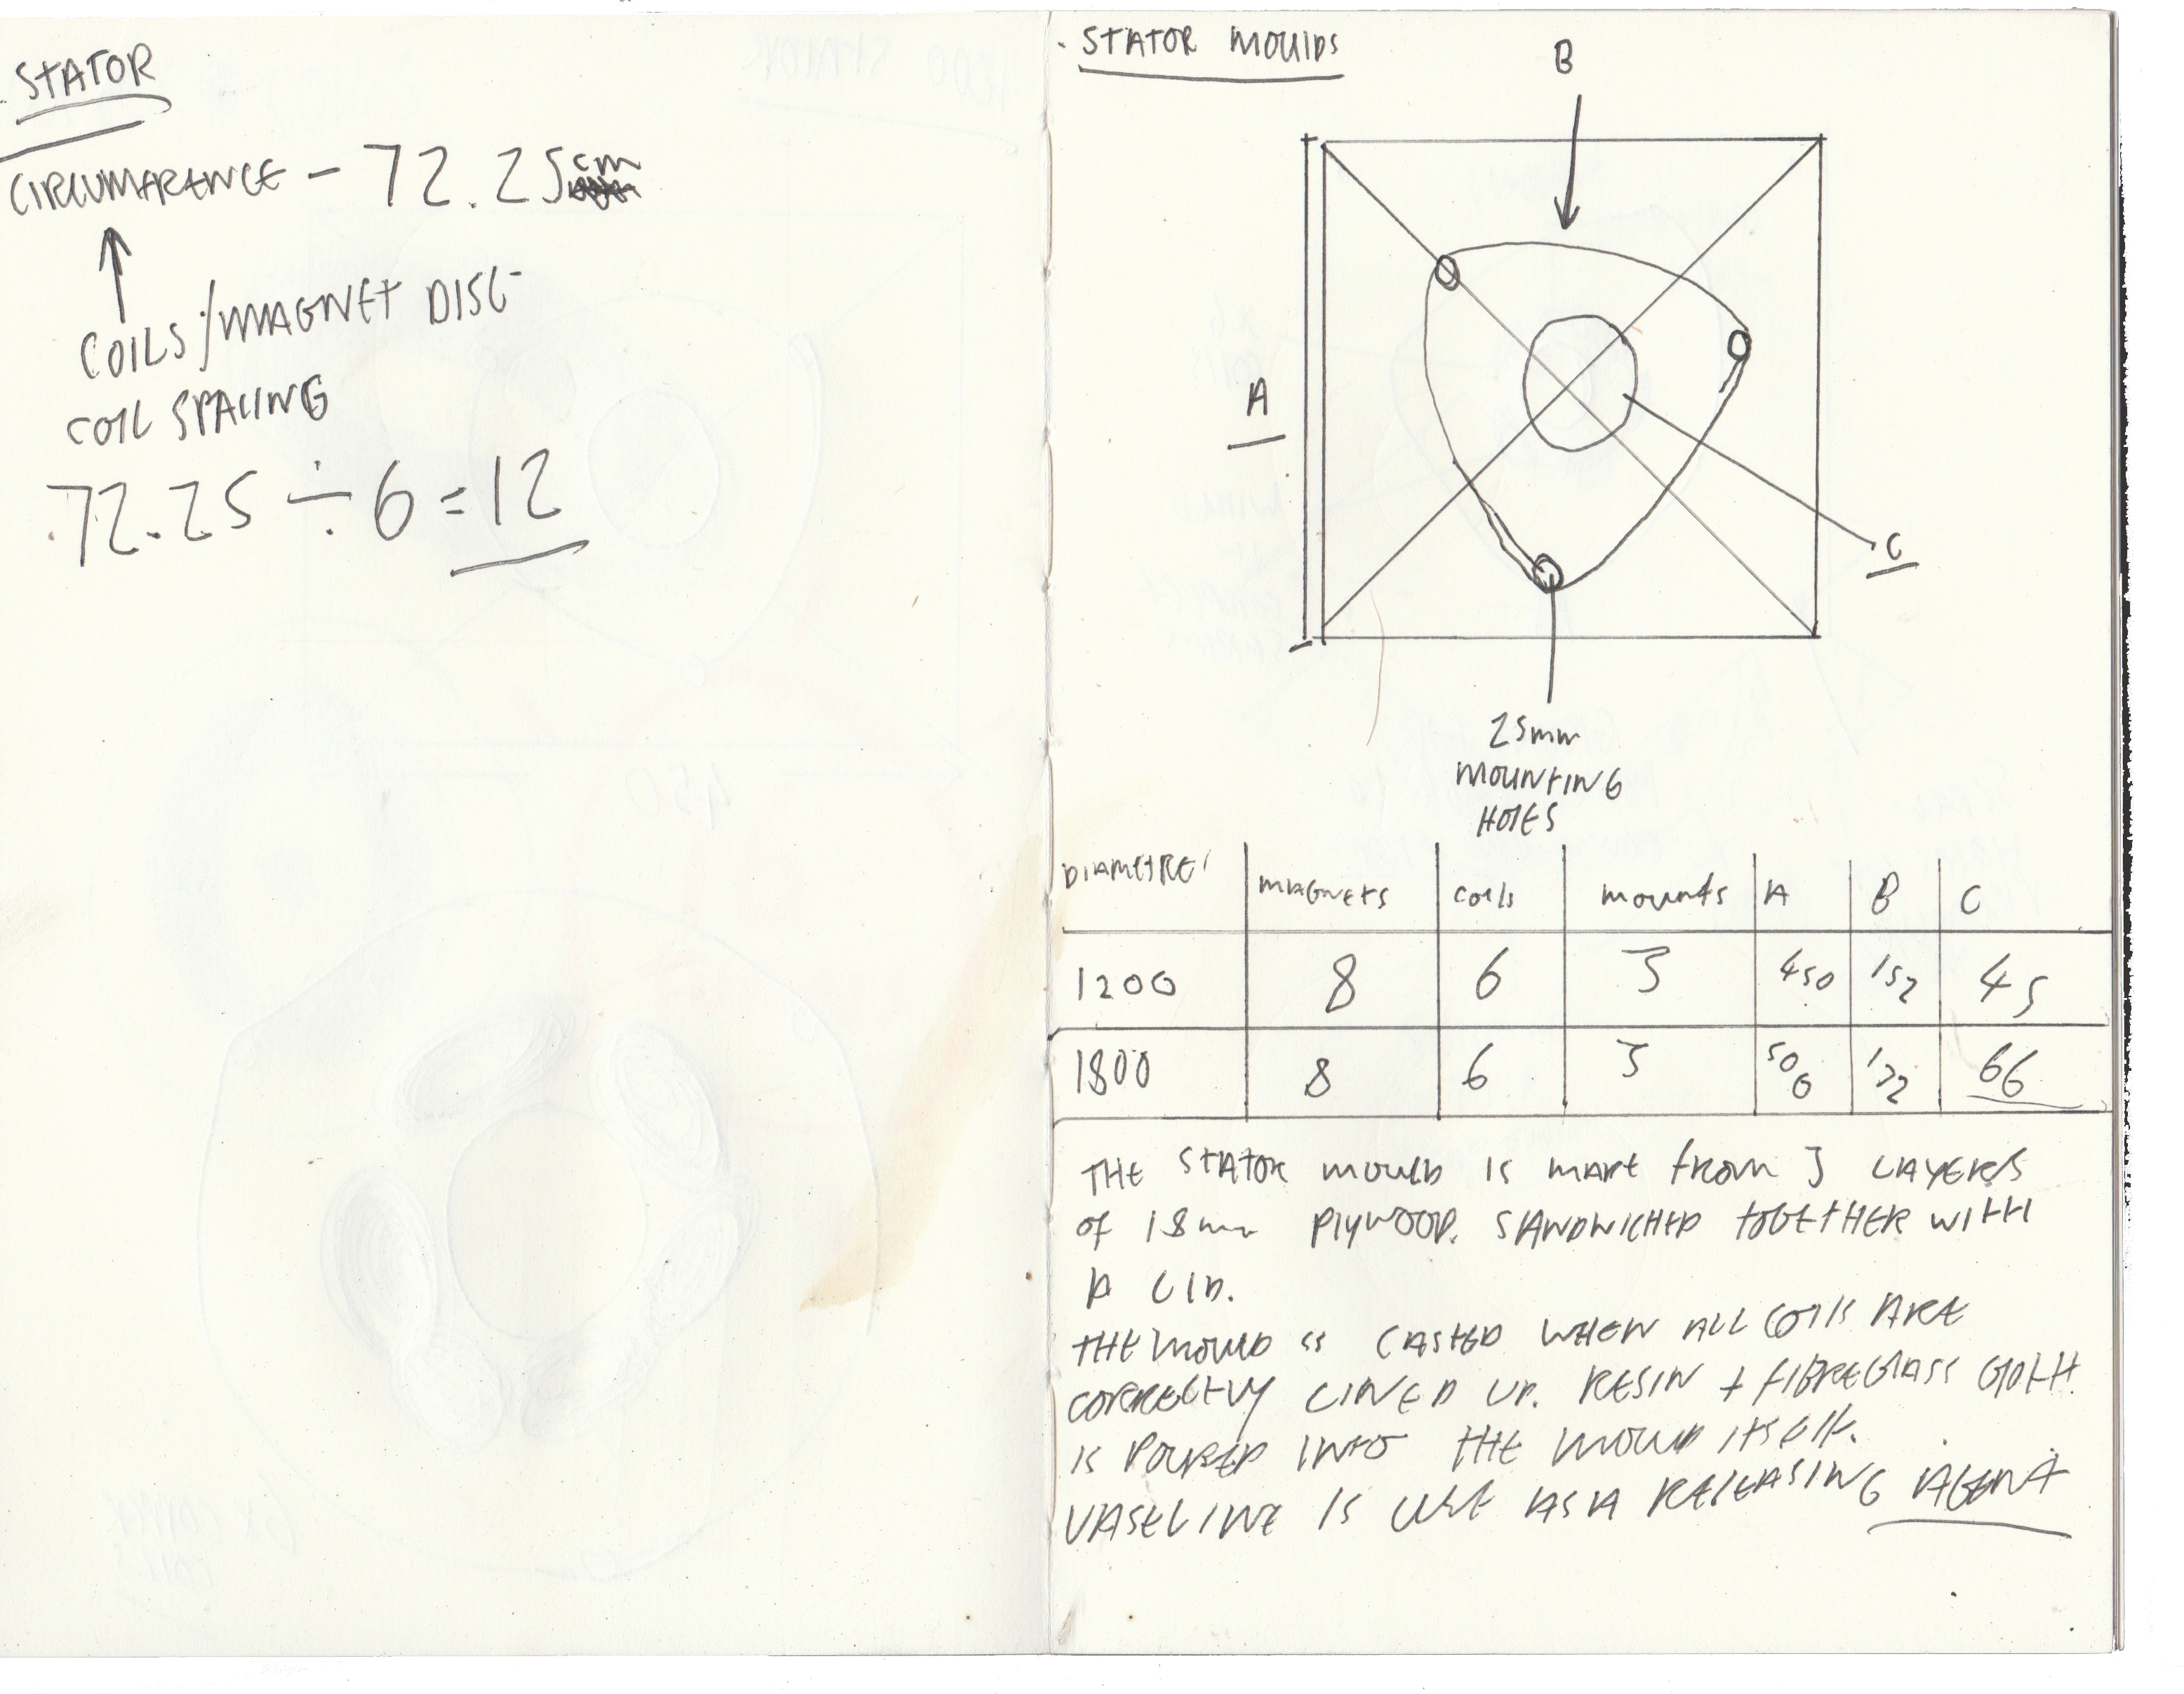 STATOR
CIRCUMARENCE - 72.25cm
COILS/MAGNET DISC
COIL SPACING
72.25 ÷ 6 = 12
STATOR MOULDS
B
A
C
25mm
MOUNTING
HOLES
DIAMETRE MAGNETS COILS MOUNTS A B C
1200 8 6 3 450 152 45
1800 8 6 3 500 172 66
THE STATOR MOULD IS MADE FROM 3 LAYERS
OF 18mm PLYWOOD. SANDWICHED TOGETHER WITH
A LID.
THE MOULD IS CASTED WHEN ALL COILS ARE
CORRECTLY LINED UP. RESIN + FIBREGLASS CLOTH
IS POURED INTO THE MOULD ITSELF.
VASELINE IS USE AS A RELEASING AGENT